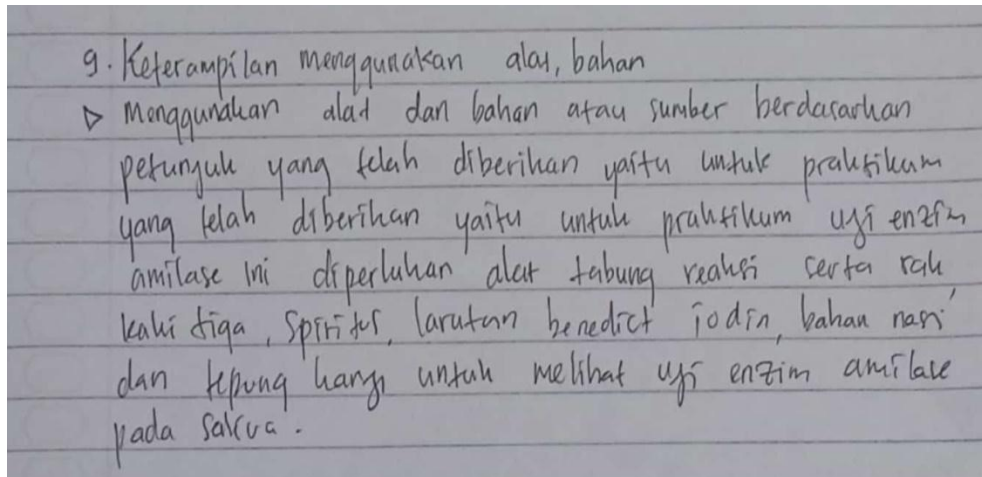 9. Keterampilan menggunakan alat, bahan
▷ Menggunakan alat dan bahan atau sumber berdasarkan
petunjuk yang telah diberikan yaitu untuk praktikum
yang telah diberikan yaitu untuk praktikum uji enzim
amilase ini diperlukan alat tabung reaksi serta rak
kaki tiga, Spiritus, larutan benedict iodin, bahan nasi
dan tepung kanji untuk melihat uji enzim amilase
pada saliva.